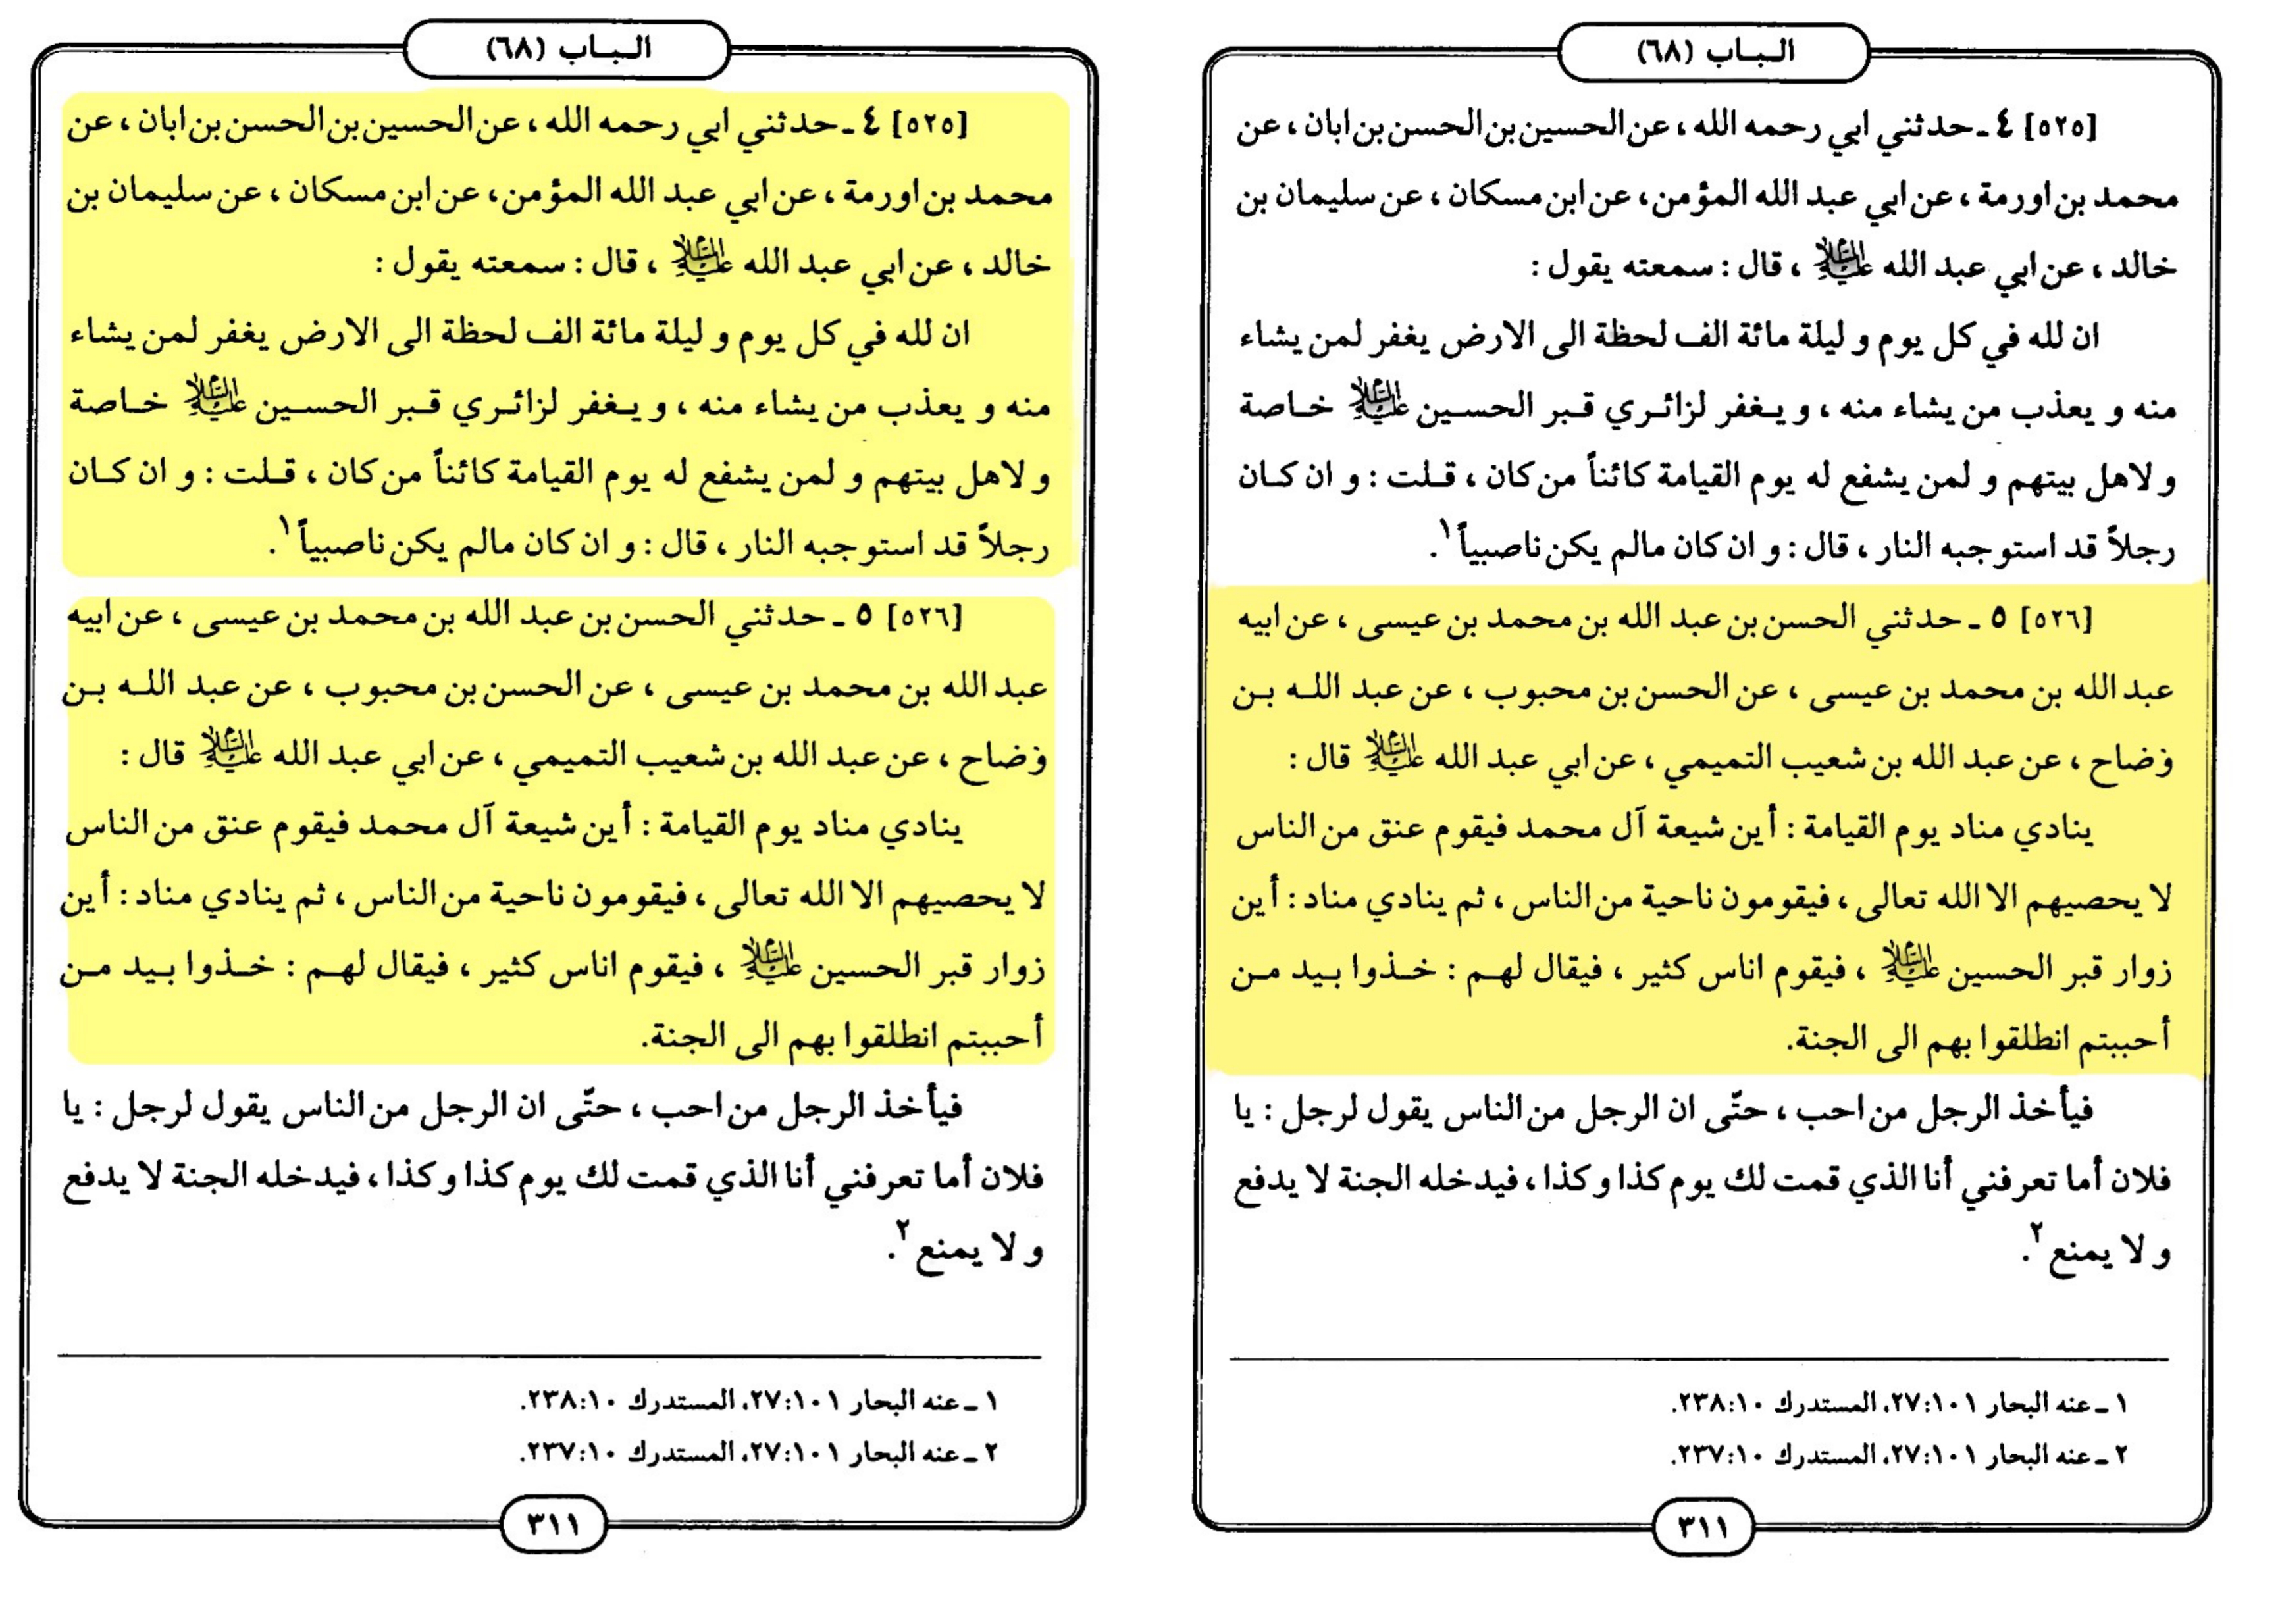 الباب (٦٨)
[٥٢٥] ٤ ـ حدثني ابي رحمه الله ، عن الحسين بن الحسن بن ابان ، عن
محمد بن اورمة ، عن ابي عبد الله المؤمن، عن ابن مسكان ، عن سليمان بن
خالد ، عن ابي عبد الله عليه السلام ، قال : سمعته يقول :
ان لله في كل يوم و ليلة مائة الف لحظة الى الارض يغفر لمن يشاء
منه و يعذب من يشاء منه ، و يغفر لزائري قبر الحسين عليه السلام خاصة
و لاهل بيتهم و لمن يشفع له يوم القيامة كائناً من كان ، قلت : و ان كان
رجلاً قد استوجبه النار ، قال : و ان كان مالم يكن ناصبياً١.
[٥٢٦] ٥ ـ حدثني الحسن بن عبد الله بن محمد بن عيسى ، عن ابيه
عبد الله بن محمد بن عيسى ، عن الحسن بن محبوب ، عن عبد الله بن
وضاح ، عن عبد الله بن شعيب التميمي ، عن ابي عبد الله عليه السلام قال :
ينادي مناد يوم القيامة : أين شيعة آل محمد فيقوم عنق من الناس
لا يحصيهم الا الله تعالى ، فيقومون ناحية من الناس ، ثم ينادي مناد : أين
زوار قبر الحسين عليه السلام ، فيقوم اناس كثير ، فيقال لهم : خذوا بيد من
أحببتم انطلقوا بهم الى الجنة.
فيأخذ الرجل من احب ، حتّى ان الرجل من الناس يقول لرجل : يا
فلان أما تعرفني أنا الذي قمت لك يوم كذا و كذا ، فيدخله الجنة لا يدفع
و لا يمنع٢.
١ ـ عنه البحار ٢٧:١٠١، المستدرك ٢٣٨:١٠.
٢ ـ عنه البحار ٢٧:١٠١، المستدرك ٢٣٧:١٠.
٣١١
الباب (٦٨)
[٥٢٥] ٤ ـ حدثني ابي رحمه الله ، عن الحسين بن الحسن بن ابان ، عن
محمد بن اورمة ، عن ابي عبد الله المؤمن، عن ابن مسكان ، عن سليمان بن
خالد ، عن ابي عبد الله عليه السلام ، قال : سمعته يقول :
ان لله في كل يوم و ليلة مائة الف لحظة الى الارض يغفر لمن يشاء
منه و يعذب من يشاء منه ، و يغفر لزائري قبر الحسين عليه السلام خاصة
و لاهل بيتهم و لمن يشفع له يوم القيامة كائناً من كان ، قلت : و ان كان
رجلاً قد استوجبه النار ، قال : و ان كان مالم يكن ناصبياً١.
[٥٢٦] ٥ ـ حدثني الحسن بن عبد الله بن محمد بن عيسى ، عن ابيه
عبد الله بن محمد بن عيسى ، عن الحسن بن محبوب ، عن عبد الله بن
وضاح ، عن عبد الله بن شعيب التميمي ، عن ابي عبد الله عليه السلام قال :
ينادي مناد يوم القيامة : أين شيعة آل محمد فيقوم عنق من الناس
لا يحصيهم الا الله تعالى ، فيقومون ناحية من الناس ، ثم ينادي مناد : أين
زوار قبر الحسين عليه السلام ، فيقوم اناس كثير ، فيقال لهم : خذوا بيد من
أحببتم انطلقوا بهم الى الجنة.
فيأخذ الرجل من احب ، حتّى ان الرجل من الناس يقول لرجل : يا
فلان أما تعرفني أنا الذي قمت لك يوم كذا و كذا ، فيدخله الجنة لا يدفع
و لا يمنع٢.
١ ـ عنه البحار ٢٧:١٠١، المستدرك ٢٣٨:١٠.
٢ ـ عنه البحار ٢٧:١٠١، المستدرك ٢٣٧:١٠.
٣١١